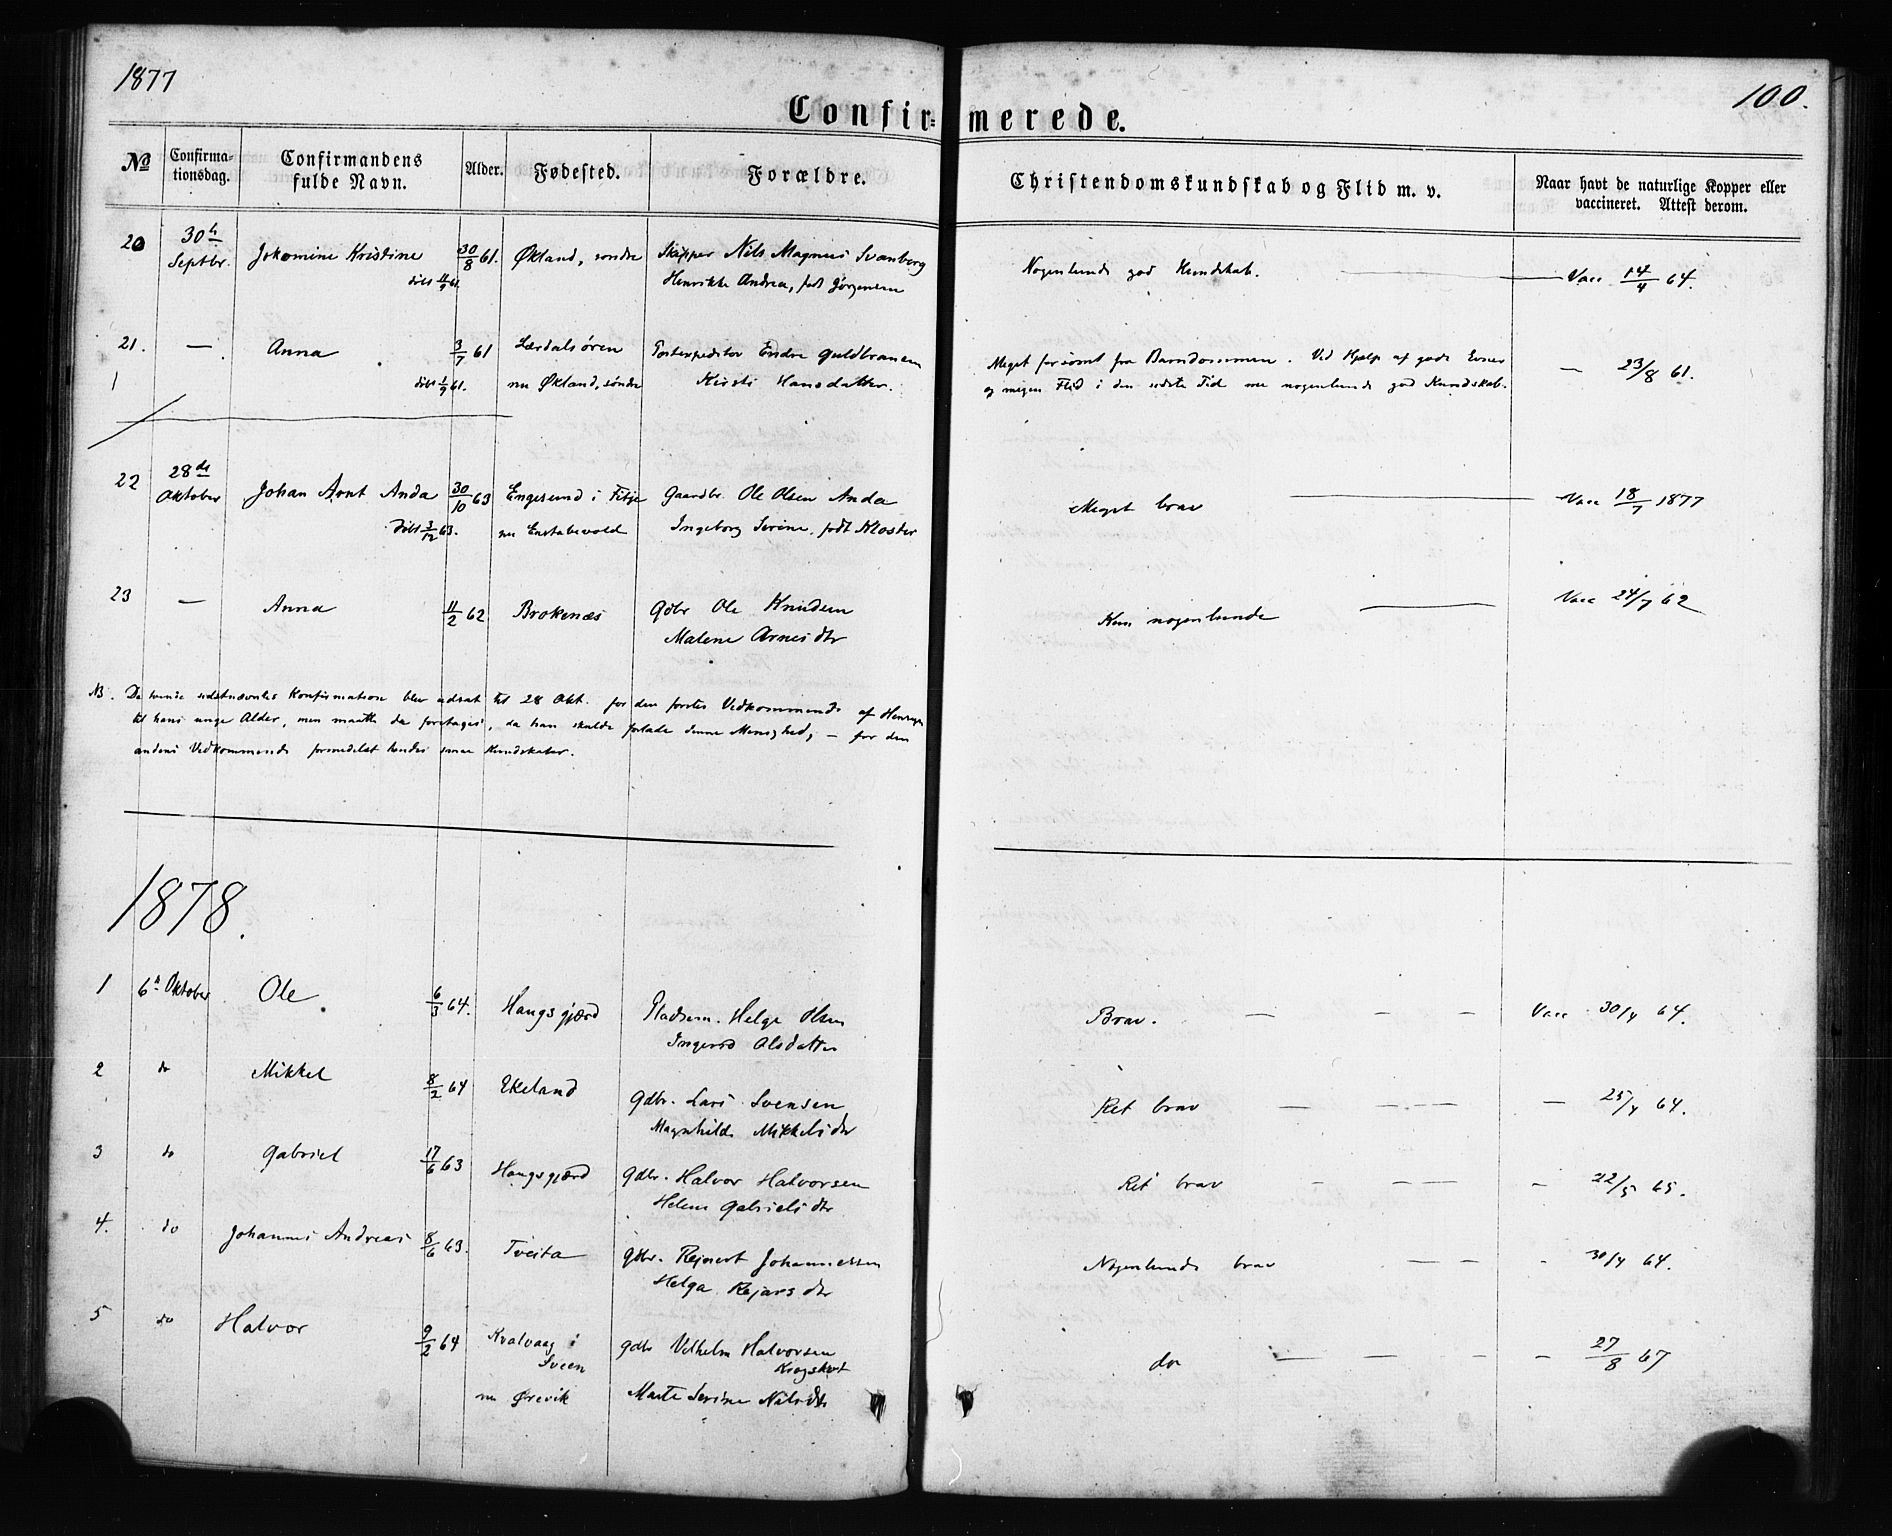 1877
100.
Confir= merede.
No
Confirma-
tionsdag.
Confirmandens
fulde Navn.
Alder.
Fødested.
Forældre.
Christendomskundskab og Flid m. v.
Naar havt de naturlige Kopper eller
vaccineret. Attest derom.
20 30te Septbr. Jokomine Kristine 30/8 61. Økland, søndre Skipper Nils Magnus Svanberg Nogenlunde god Kundskab. — Vacc 14/4 64.
døbt 11/9 61. Henrikke Andrea, født Jørgensen
21. — Anna 3/7 61 Lærdalsøren Postexpeditør Endre Guldbransen Meget forsømt fra Barndommen. Ved Hjælp af gode Evner — 23/8 61.
1 døbt 1/9 61. nu Økland, søndre Kirsti Hansdatter. og megen Flid i den sidste Tid nogenlunde god Kundskab.
22 28de Oktober Johan Arnt Anda 30/10 63 Engesund i Fitje Gaardbr. Ole Olsen Anda Meget brav — Vacc 18/7 1877
Døbt 3/12 63. nu Ingeborg Serine, født Kloster
23 — Anna 11/2 62 Brokenæs Gdbr Ole Knudsen Kun nogenlunde — Vacc 24/7 62
Malene Arnesdtr
NB. De tvende sidstnævntes Konfirmation blev udsat til 28 Okt. for den førstes Vedkommende af Hensyn
til hans unge Alder, men maatte da foretages, da han skulde forlade denne Menighed, — for den
andens Vedkommende formedelst hendes smaa Kundskaber.
1878.
1 6te Oktober Ole 6/3 64. Haugsgjærd Pladsm. Helge Olsen Brav. — — — Vacc 30/4 64.
Ingerd Olsdatter
2 do Mikkel 8/2 64 Ekeland Gdbr. Lars Svensen Ret brav — — — — 25/4 64.
Magnhilde Mikkelsdtr
3 do Gabriel 17/6 63 Haugsgjærd Gdbr. Halvor Halvorsen Ret brav — — — — 22/5 65.
Helene Gabrielsdtr
4. do Johannes Andreas 8/6 63. Tveita Gdbr. Rejnert Johannessen Nogenlunde brav — — — 30/4 64.
Helga Rejarsdtr
5 do Halvor 9/2 64 Kvalvaag i Gdbr Vilhelm Halvorsen do — — — — 27/8 67
Sveen
nu Ørevik Marte Serine Nilsdtr